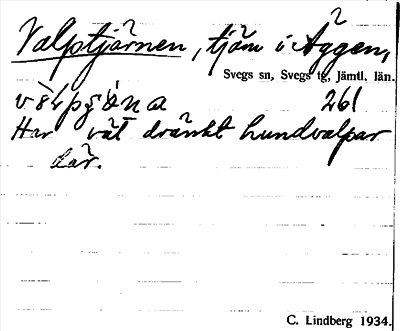 Valptjärnen, tjärn i Äggen,
Svegs sn, Svegs tg, Jämtl. län.
261
Har vät dränkt hundvalpar
där.
C. Lindberg 1934.